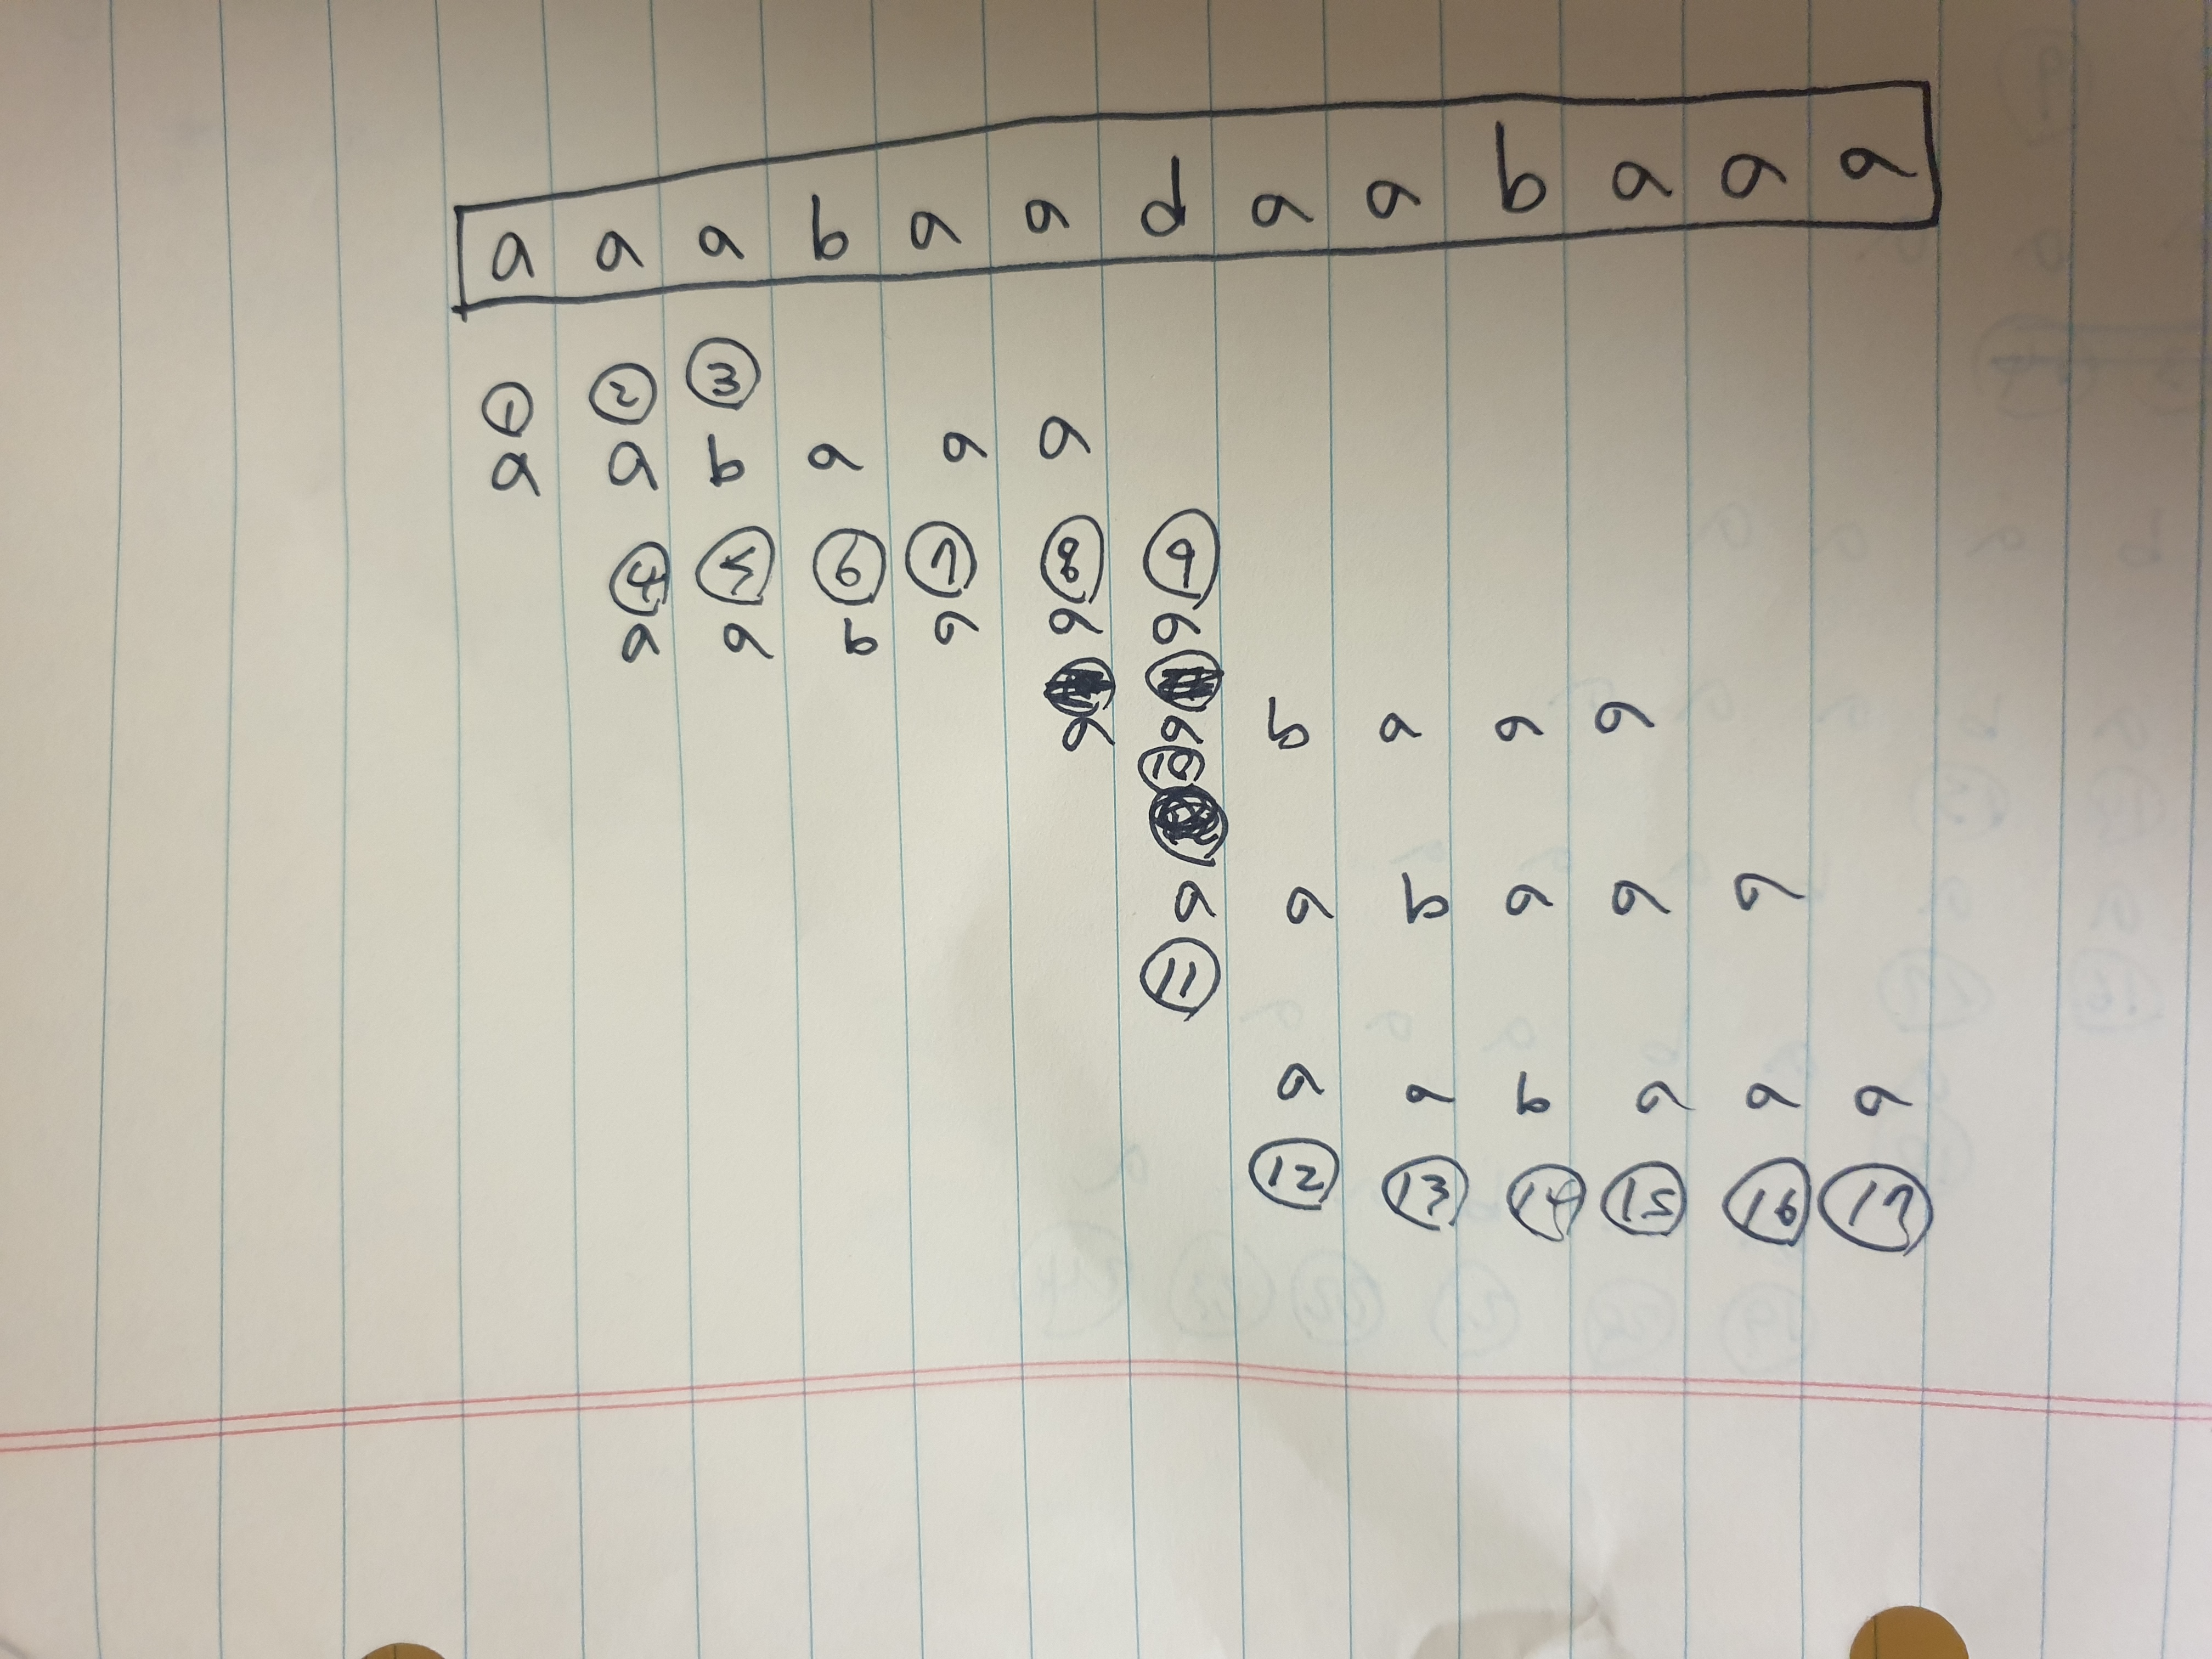 a a a b a a d a a b a a a
① ② ③
a a b a a a
④ ⑤ ⑥ ⑦ ⑧ ⑨
a a b a a a
a a b a a a
⑩
a a b a a a
⑪
a a b a a a
⑫ ⑬ ⑭ ⑮ ⑯ ⑰